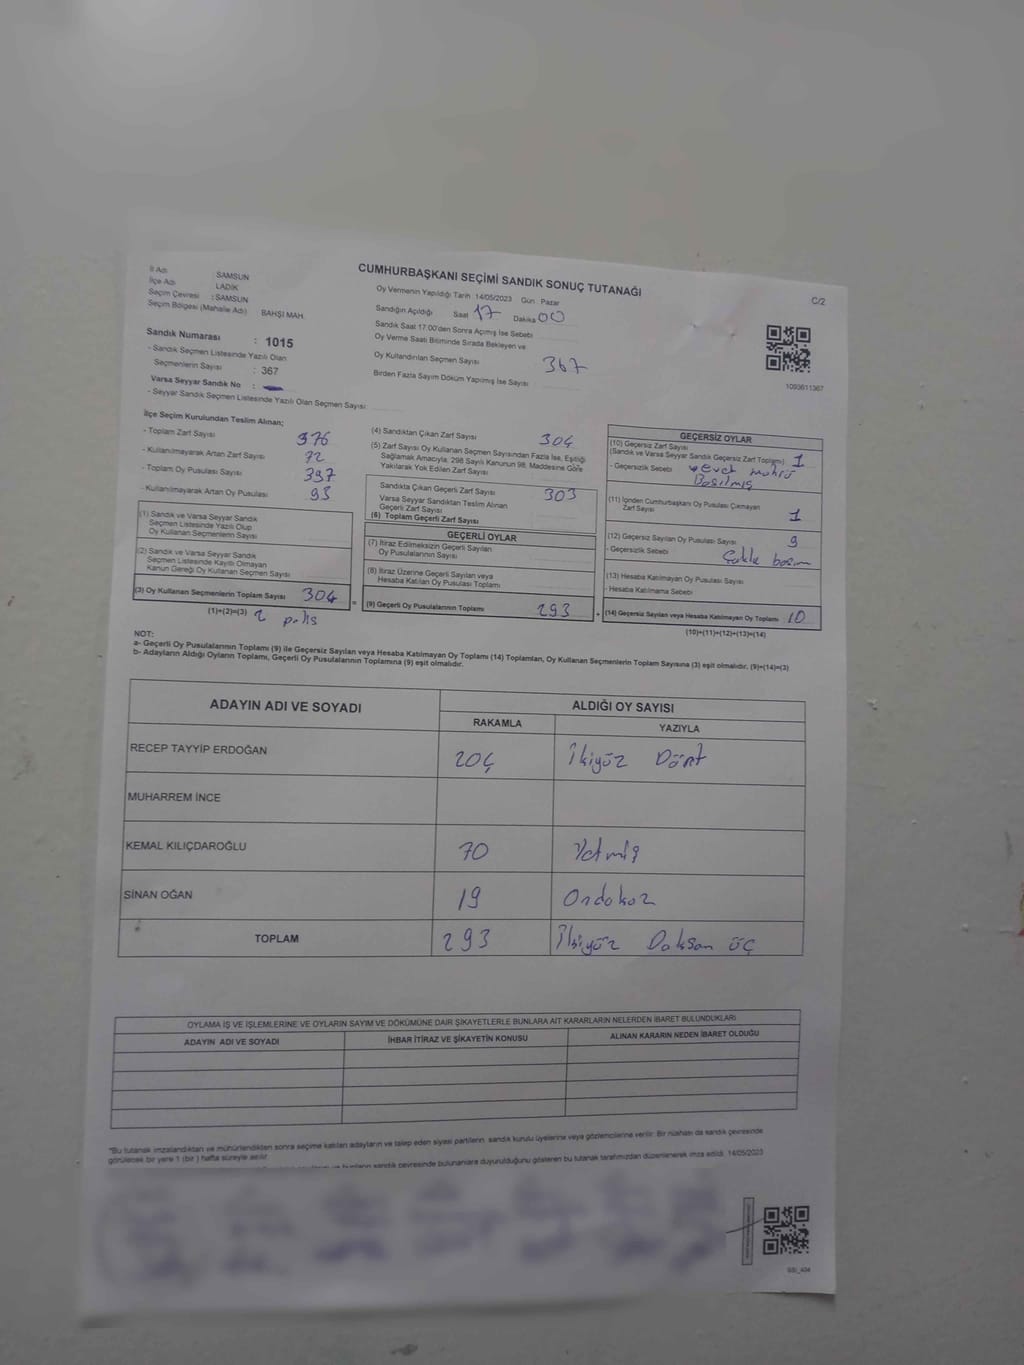 CUMHURBAŞKANI SEÇİMİ SANDIK SONUÇ TUTANAĞI
C/2
İl Adı : SAMSUN
İlçe Adı : LADİK
Seçim Çevresi : SAMSUN
Seçim Bölgesi (Mahalle Adı) BAHŞİ MAH.
Sandık Numarası : 1015
- Sandık Seçmen Listesinde Yazılı Olan
Seçmenlerin Sayısı : 367
Varsa Seyyar Sandık No :
- Seyyar Sandık Seçmen Listesinde Yazılı Olan Seçmen Sayısı:
Oy Vermenin Yapıldığı Tarih : 14/05/2023 Gün Pazar
Sandığın Açıldığı Saat 17 Dakika 00
Sandık Saat 17:00'den Sonra Açılmış İse Sebebi
Oy Verme Saati Bitiminde Sırada Bekleyen ve
Oy Kullandırılan Seçmen Sayısı 367
Birden Fazla Sayım Döküm Yapılmış İse Sayısı
1093611367
İlçe Seçim Kurulundan Teslim Alınan;
- Toplam Zarf Sayısı 376
- Kullanılmayarak Artan Zarf Sayısı 72
- Toplam Oy Pusulası Sayısı 397
- Kullanılmayarak Artan Oy Pusulası 93
(1) Sandık ve Varsa Seyyar Sandık
Seçmen Listesinde Yazılı Olup
Oy Kullanan Seçmenlerin Sayısı
(2) Sandık ve Varsa Seyyar Sandık
Seçmen Listesinde Kayıtlı Olmayan
Kanun Gereği Oy Kullanan Seçmen Sayısı
(3) Oy Kullanan Seçmenlerin Toplam Sayısı 304 =
(1)+(2)=(3) 2 polis
(4) Sandıktan Çıkan Zarf Sayısı 304
(5) Zarf Sayısı Oy Kullanan Seçmen Sayısından Fazla İse, Eşitliği
Sağlamak Amacıyla, 298 Sayılı Kanunun 98. Maddesine Göre
Yakılarak Yok Edilen Zarf Sayısı
Sandıkta Çıkan Geçerli Zarf Sayısı 303
Varsa Seyyar Sandıktan Teslim Alınan
Geçerli Zarf Sayısı
(6) Toplam Geçerli Zarf Sayısı
GEÇERLİ OYLAR
(7) İtiraz Edilmeksizin Geçerli Sayılan
Oy Pusulalarının Sayısı
(8) İtiraz Üzerine Geçerli Sayılan veya
Hesaba Katılan Oy Pusulası Toplamı
(9) Geçerli Oy Pusulalarının Toplamı 293 +
GEÇERSİZ OYLAR
(10) Geçersiz Zarf Sayısı
(Sandık ve Varsa Seyyar Sandık Geçersiz Zarf Toplamı) 1
- Geçersizlik Sebebi evet mührü
Basılmış
(11) İçinden Cumhurbaşkanı Oy Pusulası Çıkmayan
Zarf Sayısı 1
(12) Geçersiz Sayılan Oy Pusulası Sayısı 9
- Geçersizlik Sebebi
(13) Hesaba Katılmayan Oy Pusulası Sayısı
- Hesaba Katılmama Sebebi
(14) Geçersiz Sayılan veya Hesaba Katılmayan Oy Toplamı 10
(10)+(11)+(12)+(13)=(14)
NOT:
a- Geçerli Oy Pusulalarının Toplamı (9) ile Geçersiz Sayılan veya Hesaba Katılmayan Oy Toplamı (14) Toplamları, Oy Kullanan Seçmenlerin Toplam Sayısına (3) eşit olmalıdır. (9)+(14)=(3)
b- Adayların Aldığı Oyların Toplamı, Geçerli Oy Pusulalarının Toplamına (9) eşit olmalıdır.
ADAYIN ADI VE SOYADI ALDIĞI OY SAYISI
RAKAMLA YAZIYLA
RECEP TAYYİP ERDOĞAN 204 İkiyüz Dört
MUHARREM İNCE
KEMAL KILIÇDAROĞLU 70 Yetmiş
SİNAN OĞAN 19 Ondokuz
TOPLAM 293 İkiyüz Doksan üç
OYLAMA İŞ VE İŞLEMLERİNE VE OYLARIN SAYIM VE DÖKÜMÜNE DAİR ŞİKAYETLERLE BUNLARA AİT KARARLARIN NELERDEN İBARET BULUNDUKLARI
ADAYIN ADI VE SOYADI İHBAR İTİRAZ VE ŞİKAYETİN KONUSU ALINAN KARARIN NEDEN İBARET OLDUĞU
*Bu tutanak imzalandıktan ve mühürlendikten sonra seçime katılan adayların ve talep eden siyasi partilerin sandık kurulu üyelerine veya gözlemcilerine verilir. Bir nüshası da sandık çevresinde
görülecek bir yere 1 (bir) hafta süreyle asılır.
sandık çevresinde bulunanlara duyurulduğunu gösteren bu tutanak tarafımızdan düzenlenerek imza edildi. 14/05/2023